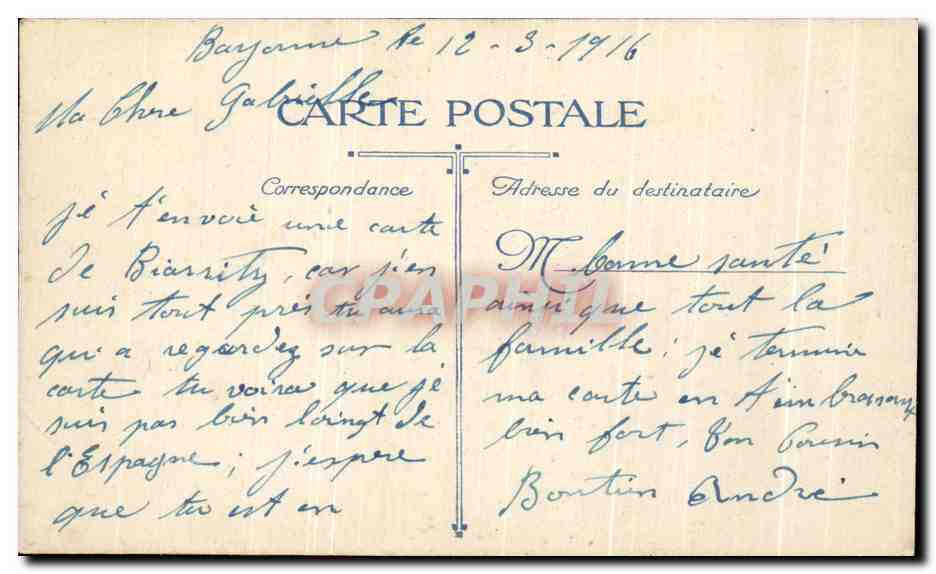 Bayonne le 12-3-1916
Ma Chere Gabrielle
CARTE POSTALE
Correspondance
jé t'envoie une carte
de Biarritz, car j'en
suis tout près tu aura
qu'a regardez sur la
carte tu voira que jé
suis pas bien loingt de
l'Espagne; j'espere
que tu est en
Adresse du destinataire
M bonne santé
ainsi que tout la
famille; jé termine
ma carte en t'embrasant
bien fort, ton Cousin
André
CPAPHIL